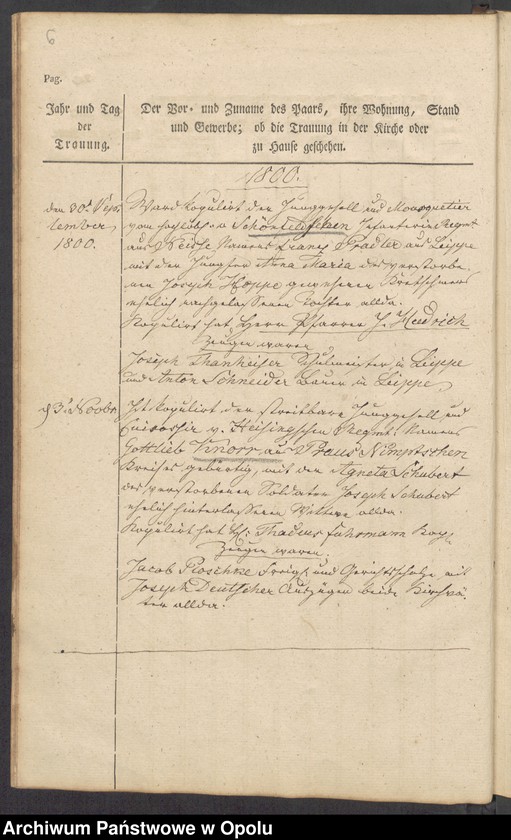 6
Pag.
Jahr und Tag
der
Trauung.
Der Vor- und Zuname des Paars, ihre Wohnung, Stand
und Gewerbe; ob die Trauung in der Kirche oder
zu Hause geschehen.
1800.
den 30t Sep-
tember
1800.
Ward kopulirt der Junggesell und Mousquetier
vom Schönfeldschen Infanterie Regmt
aus Neisse Namens Franz Pradler aus Leippe
mit der Jungfer Anna Maria des verstorbe-
nen Joseph Hoppe gewesenen Kretschmers
ehelich nachgelassenen Tochter allda.
Kopulirt hat Herr Pfarrer J. Heidrich
Zeugen waren
Joseph Thanheiser Schulmeister in Leippe
und Anton Schneider Bauer in Leippe
d 3t Novbr
Ist kopulirt der streitbare Junggesell und
Cuirassir v. Heisingschen Regmt Namens
Gottlieb Knorr aus Praus Nimptschen
Kreises gebürtig, mit der Agneta Schubert
des verstorbenen Soldaten Joseph Schubert
ehelich hinterlassenen Wittwe allda.
Kopulirt hat H: Thadeus Fuhrmann Kapl
Zeugen waren.
Jacob Ploschke Freigr und Gerichtsscholze mit
Joseph Deutscher Auszügler beide Kirchvä-
ter allda.
Archiwum Państwowe w Opolu